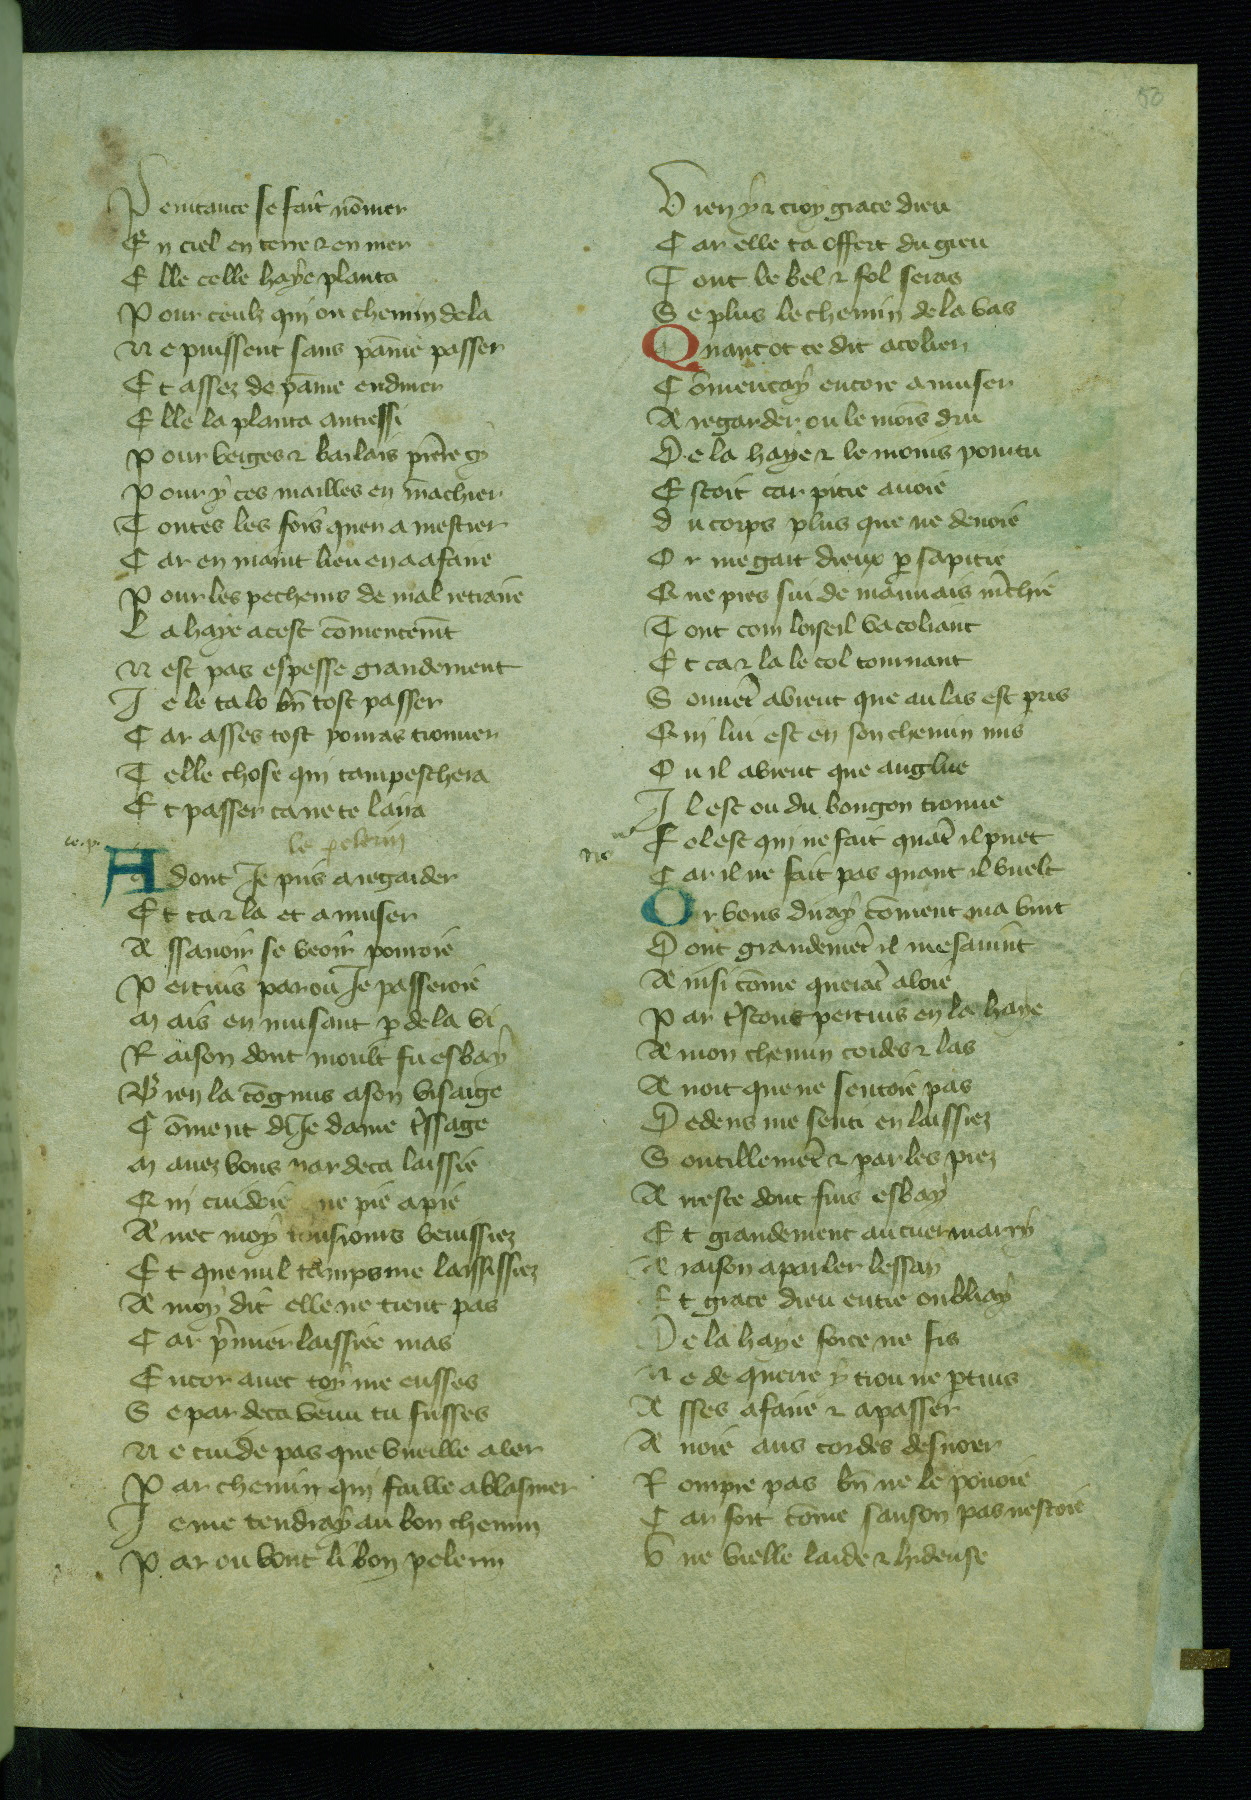 50
P enitance se fait nōmer
E n ciel en terre ⁊ en mer
E lle celle haye planta
P our ceulz qui ou chemin de la
N e puissent sans pāine passer
E t assez de pāine endurer
E lle la planta autressi
P our verges ⁊ bailais prēre y
P our y ces mailles en māchier
T outes les fois quen a mestier
C ar en maint lieu en a afaire
P our les pecheurs de mal retraire
L a haye a cest cōmencemēt
N est pas espesse grandement
I e le ta lo bn̄ tost passer
C ar asses tost pourras trouuer
T elle chose qui tampeschera
E t passer ca ne te laira
le pelerin
A dont Ie pris a regarder
E t ca ⁊ la et a muser
A ssauoir se veoir pourroie
P ertuis par ou Ie passeroie
M ais en musant p̱ de la vi
R aison dont moult fu esbay
B ien la cōgnus a son visaige
C ōment di Ie dame tssage
M auez vous par deca laissie
Q ui cuidoie ne pie a pie
A uec moy tousiours venissiez
E t que nul tamps me laississiez
A moy dit elle ne tient pas
C ar pmier laissiee mas
E ncor auec toy me eusses
S e par deca venu tu fusses
N e cuide pas que vueille aler
P ar chemin qui faille a blasmer
I e me tendray au bon chemin
P ar ou vont li bon pelerin
V ien y ⁊ croy grace dieu
C ar elle ta offert du gieu
T out le bel ⁊ fol seras
S e plus le chemin de la vas
Q uant ot ce dit a colien
C ōmencay encore a muser
A regarder ou le mois dru
D e la haye ⁊ le moins pointu
E stoit car pitie auoie
D u corps plus que ne deuoie
O r me gait dieux p̱ sa pitie
Q ne pres sui de mauuais mchie
T out com loiseil va coliant
E t ca ⁊ la le col tournant
S ouuēt avient que au las est pris
Q ui lui est en son chemin mis
O u il avient que au glue
I l est ou du bougon tronue
F ol est qui ne fait quāt il puet
C ar il ne fait pas quant il vuelt
O r vous diray cōment ma vint
D ont grandemēt il mesauint
A insi cōme querāt aloie
P ar tstous pertuis en la haye
A mon chemin cordes ⁊ las
A uoit que ne sentoie pas
D edens me senti enlaissiez
S outillemēt ⁊ par les piez
A rreste dont fuis esbay
E t grandement au cuer marry
A raison a parler lessay
E t grace dieu entre oubliay
D e la haye force ne fis
N e de querre y trou ne ptuis
A sses a faire ⁊ a passer
A uoie aus cordes desnoer
R ompre pas bn̄ ne le pouoie
C ar fort cōme sanson pas nestoie
V ne vielle laide ⁊ hideuse